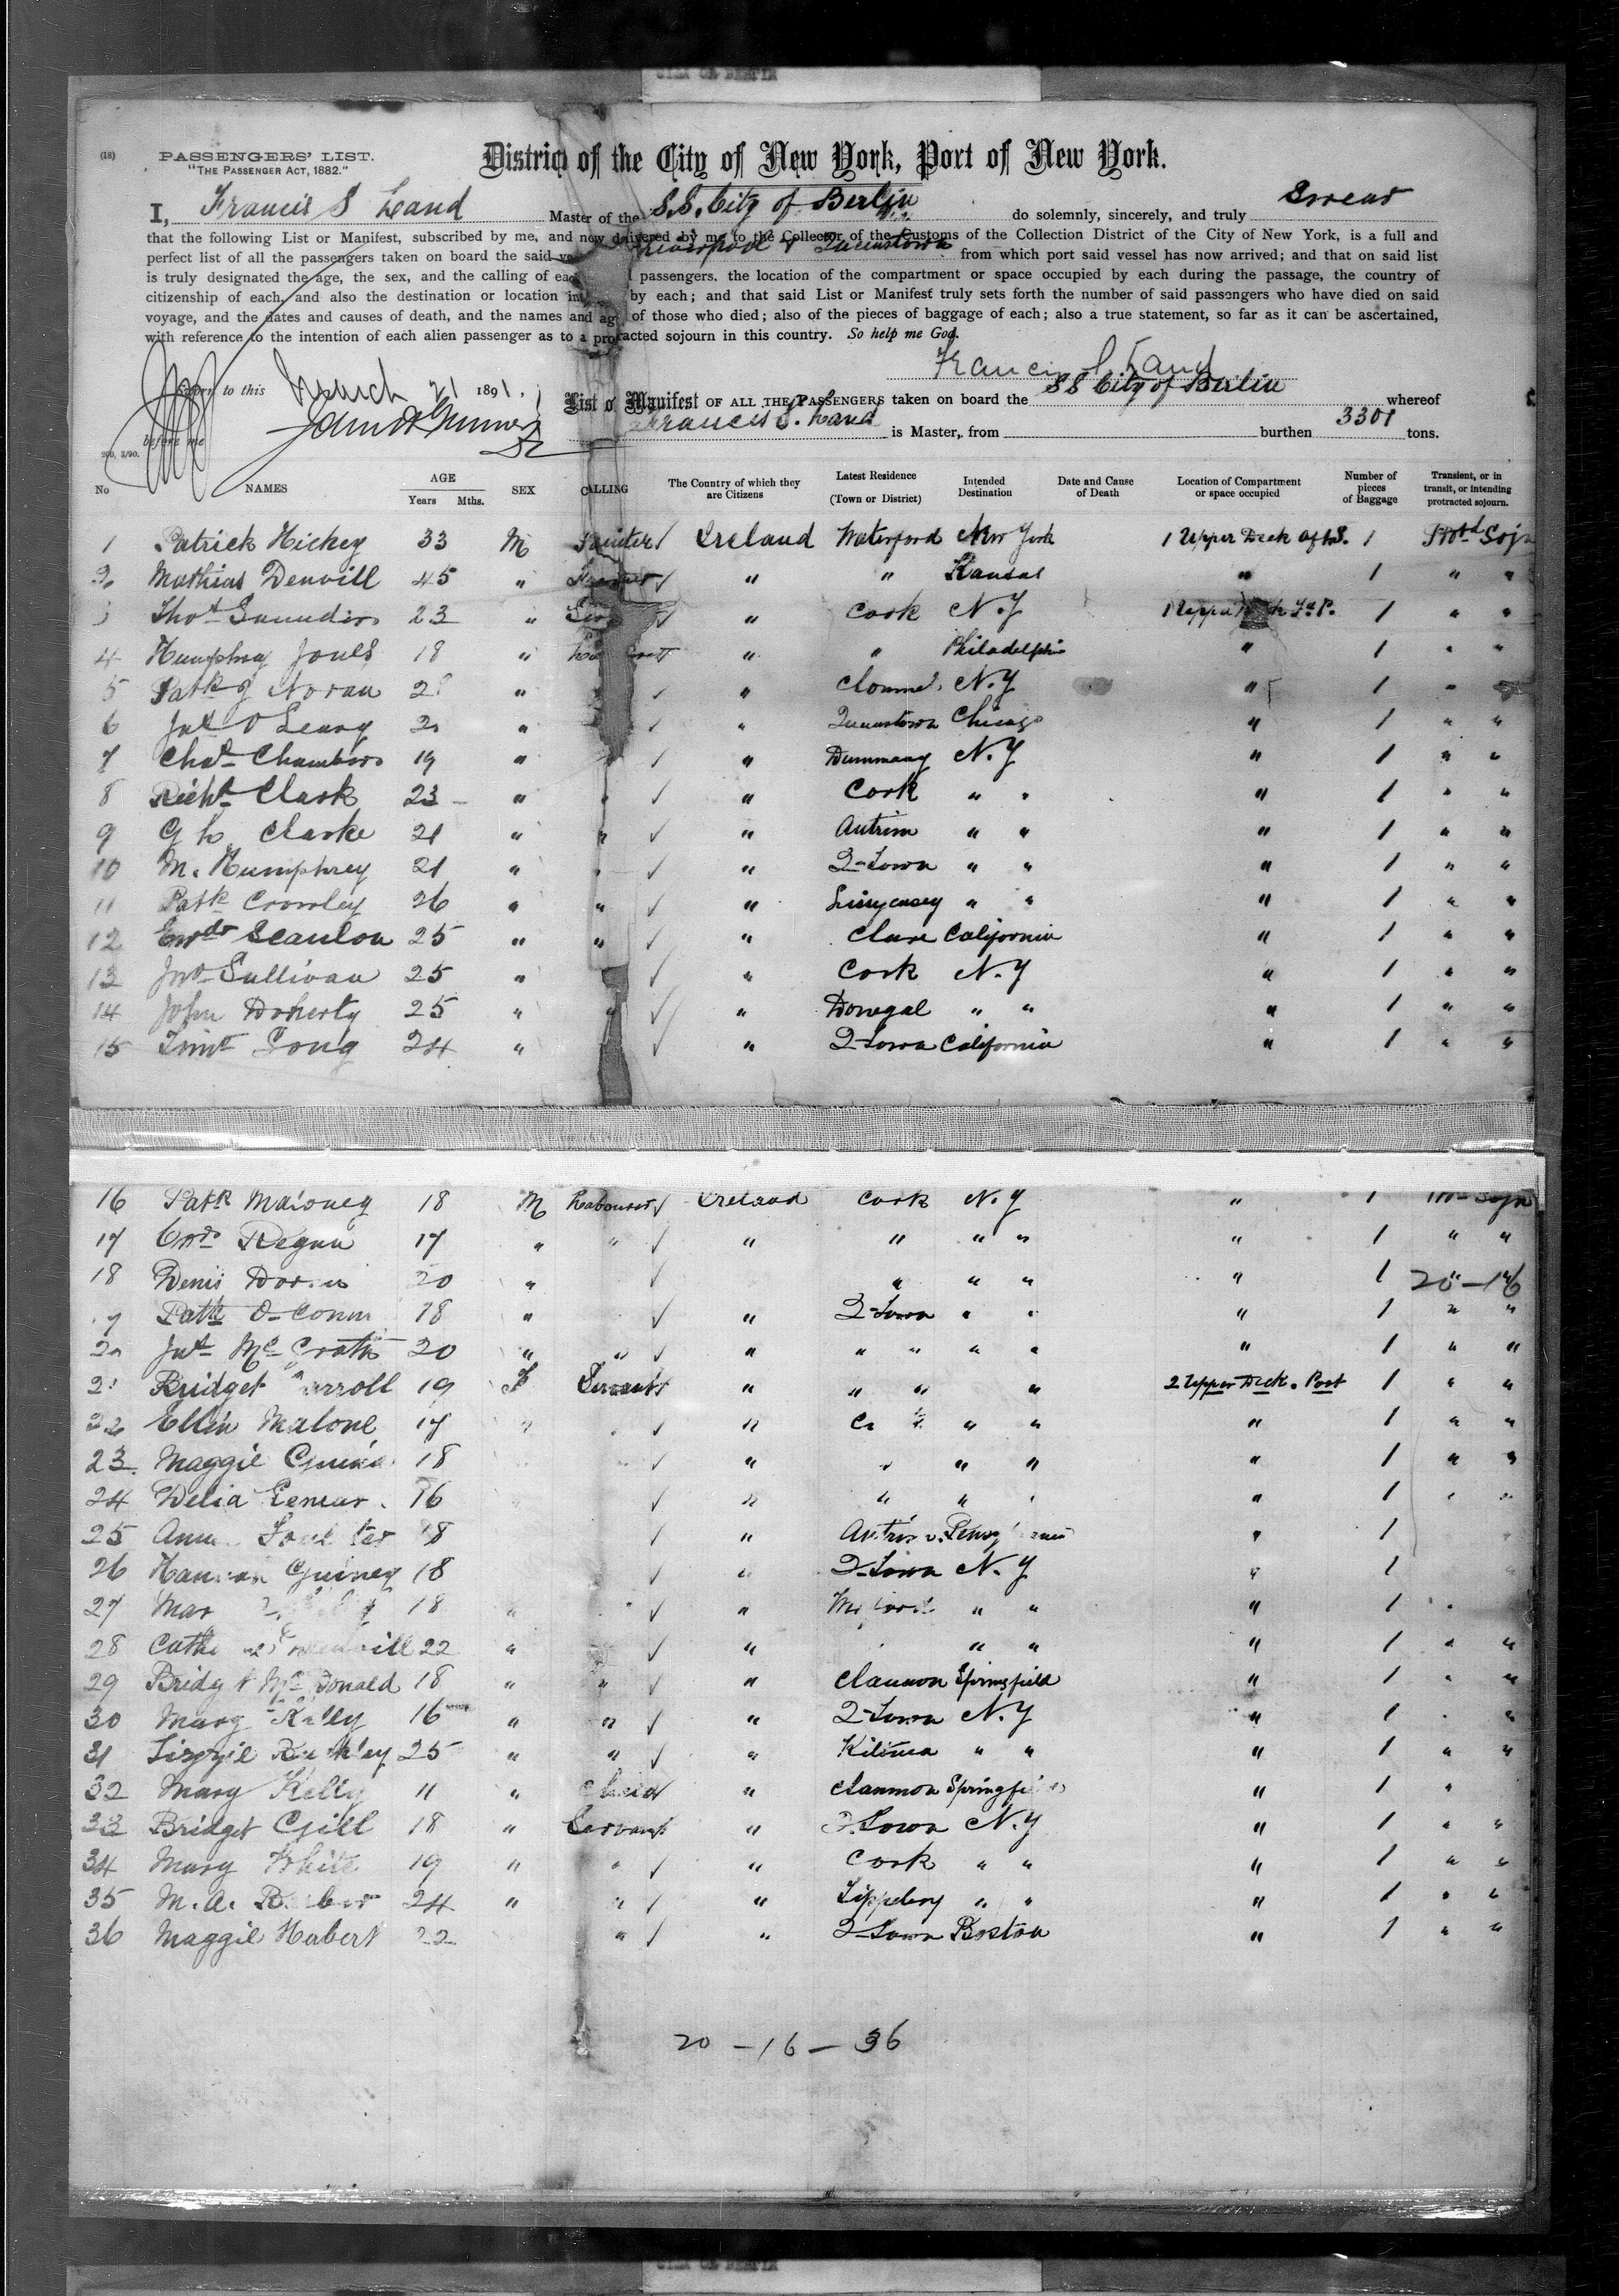 (18)
PASSENGERS' LIST.
"THE PASSENGER ACT, 1882."
District of the City of New York, Port of New York.
I, Francis S Land Master of the S.S. City of Berlin do solemnly, sincerely, and truly Swear
that the following List or Manifest, subscribed by me, and now delivered by me to the Collector of the Customs of the Collection District of the City of New York, is a full and
perfect list of all the passengers taken on board the said Liverpool & Queenstown from which port said vessel has now arrived; and that on said list
is truly designated the age, the sex, and the calling of passengers, the location of the compartment or space occupied by each during the passage, the country of
citizenship of each, and also the destination or location by each; and that said List or Manifest truly sets forth the number of said passengers who have died on said
voyage, and the dates and causes of death, and the names and of those who died; also of the pieces of baggage of each; also a true statement, so far as it can be ascertained,
with reference to the intention of each alien passenger as to a protracted sojourn in this country. So help me God.
Francis S Land
to this March 21 1891.
before me
List or Manifest OF ALL THE PASSENGERS taken on board the SS City of Berlin whereof
Francis S. Land is Master, from burthen 3301 tons.
200, 3/90.
No NAMES AGE Years Mths. SEX CALLING The Country of which they are Citizens Latest Residence (Town or District) Intended Destination Date and Cause of Death Location of Compartment or space occupied Number of pieces of Baggage Transient, or in transit, or intending protracted sojourn.
1 Patrick Hickey 33 M Painter ✓ Ireland Waterford New York 1 Upper Deck Aft S. 1 Protd Sojn
2 Mathias Denvill 45 " ✓ " " Kansas " 1 " "
Thos Saunders 23 " ✓ " Cork N.Y 1 Upper 1 " "
4 Humphrey Jones 18 " " " Philadelphia " 1 " "
5 Patk J Noran " ✓ " N.Y " 1 "
6 Jas O Leary " ✓ " Queenstown Chicago " 1 " "
7 Chas Chambers 19 " ✓ " N.Y " 1 " "
8 Richd Clark 23 " " ✓ " Cork " " " 1 " "
9 G H Clarke 21 " " ✓ " Antrim " " " 1 " "
10 M. Humphrey 21 " " ✓ " Q-Town " " " 1 " "
11 Patk Crowley 26 " " ✓ " Lissycasey " " " 1 " "
12 Edwd Scanlon 25 " " ✓ " Clare California " 1 " "
13 Jno Sullivan 25 " ✓ " Cork N.Y " 1 " "
14 John Doherty 25 " " ✓ " Donegal " " " 1 " "
15 Timt Long 24 " ✓ " Q-Town California " 1 " "
16 Patk Maloney 18 M Labourer ✓ Ireland Cork N.Y " 1 Sojn
17 Regan 17 " " ✓ " " " " " 1 " "
18 Denis 20 " ✓ " " " " 1 " "
20-16
Patk O-Connor 18 " ✓ " Q-Town " " " 1 " "
Jas McGrath 20 " " ✓ " " " " " " 1 " "
Bridget Carroll 19 F Servant ✓ " " " " 2 Upper Deck. Port 1 " "
22 Ellen Malone 17 " ✓ " " " " 1 " "
23 Maggie 18 ✓ " " " " " 1 " "
24 Delia 16 ✓ " " " " 1 " "
25 18 ✓ " Antrim " 1
26 Hannah Guiney 18 ✓ " Q-Town N.Y " 1
27 18 " " ✓ " " " " 1 "
28 22 " ✓ " " " " 1 " "
29 Bridgt McDonald 18 " " ✓ " Clanmon Springfield " 1 " "
30 Mary Kelly 16 " " ✓ " Q-Town N.Y " 1 " "
31 Lizzie Buckley 25 " " ✓ " " " " 1 " "
32 Mary Kelly 11 " Child ✓ " Clanmon Springfield " 1 "
33 Bridget Gill 18 " Servant " Q-Town N.Y " 1 " "
34 Mary White 19 " " ✓ " Cork " " " 1 " "
35 M.A. 24 " " ✓ " " " " 1 " "
36 Maggie Hubert 22 " ✓ " Q-Town Boston " 1 " "
20 - 16 - 36